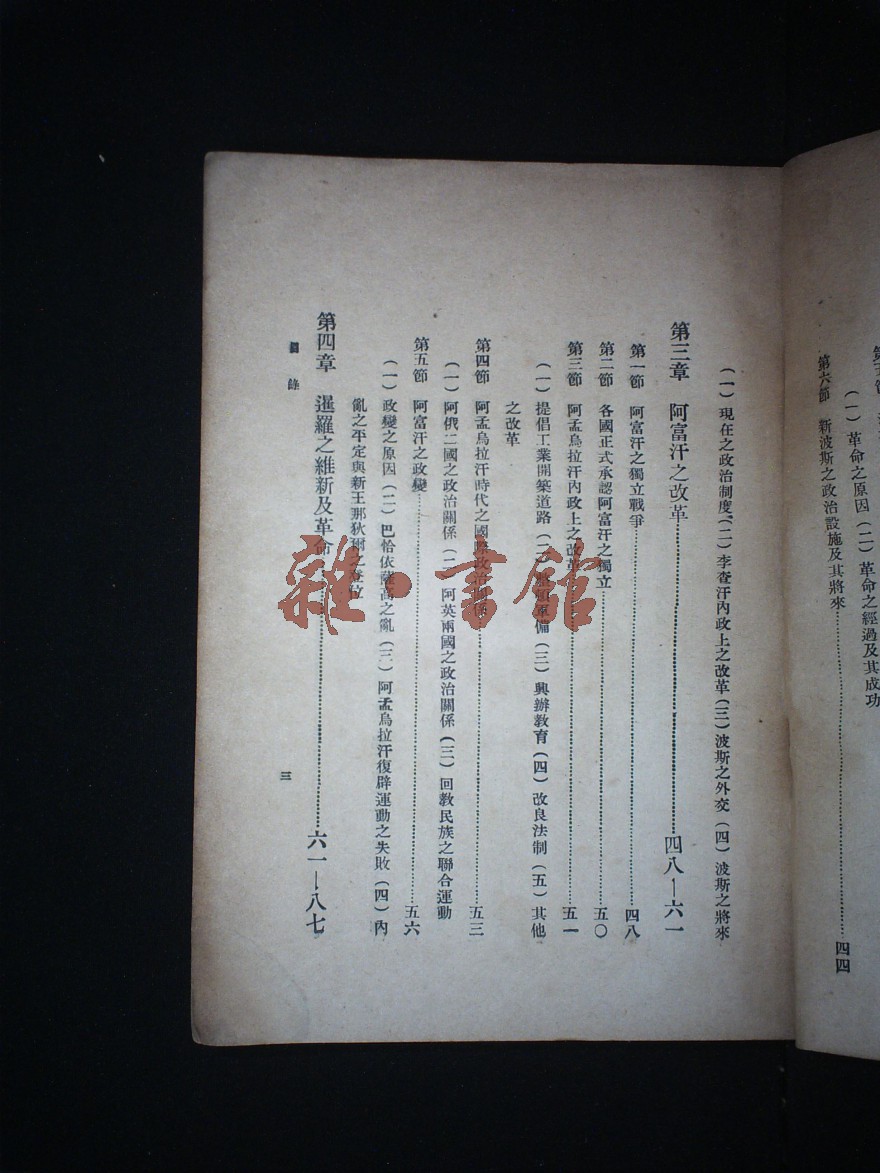 （一）革命之原因（二）革命之經過及其成功
第六節　新波斯之政治設施及其將來……四四
（一）現在之政治制度（二）李查汗內政上之改革（三）波斯之外交（四）波斯之將來
第三章　阿富汗之改革……四八—六一
第一節　阿富汗之獨立戰爭……四八
第二節　各國正式承認阿富汗之獨立……五〇
第三節　阿孟烏拉汗內政上之改革……五一
（一）提倡工業開築道路（二）軍備（三）興辦教育（四）改良法制（五）其他
之改革
第四節　阿孟烏拉汗時代之國際政治關係……五三
（一）阿俄二國之政治關係（二）阿英兩國之政治關係（三）回教民族之聯合運動
第五節　阿富汗之政變……五六
（一）政變之原因（二）巴恰依薩高之亂（三）阿孟烏拉汗復辟運動之失敗（四）內
亂之平定與新王那狄爾之登位
第四章　暹羅之維新及革命……六一—八七
目錄
三
雜·書館